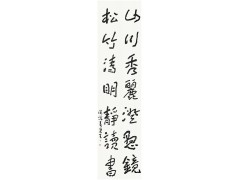 山川秀麗澄懸鏡
松竹清明靜讀書